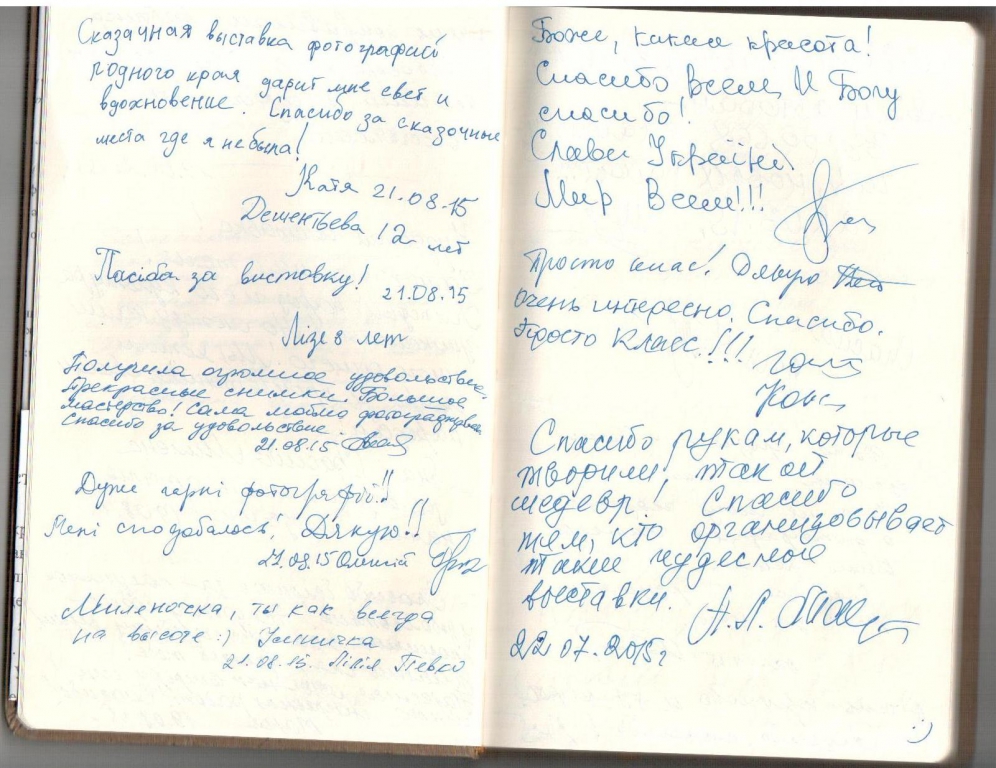 Сказачная выставка фотографий
родного края дарит мне свет и
вдохновение. Спасибо за сказочные
места где я не была!
Катя 21.08.15
Дементьева 12 лет
Пасіба за виставку!
21.08.15
Лізе 8 лет
Получила огромное удовольствие.
Прекрасные снимки. Большое
мастерство! Сама люблю
Спасибо за удовольствие.
21.08.15
Дуже гарні фотографії!!
Мені сподобалось! Дякую!!
21.08.15
Миленочка, ты как всегда
на высоте :) Умничка
21.08.15. Лілія Певко
Боже, какая красота!
Спасибо Всем, И Богу
спасибо!
Слава Україні!
Мир Всем!!!
Просто клас! Дякую
Очень интересно. Спасибо.
Просто Класс!!!
Спасибо рукам, которые
творили, такой
шедевр! Спасибо
тем, кто организовывает
такие чудесные
выставки.
22.07.2015г
:)